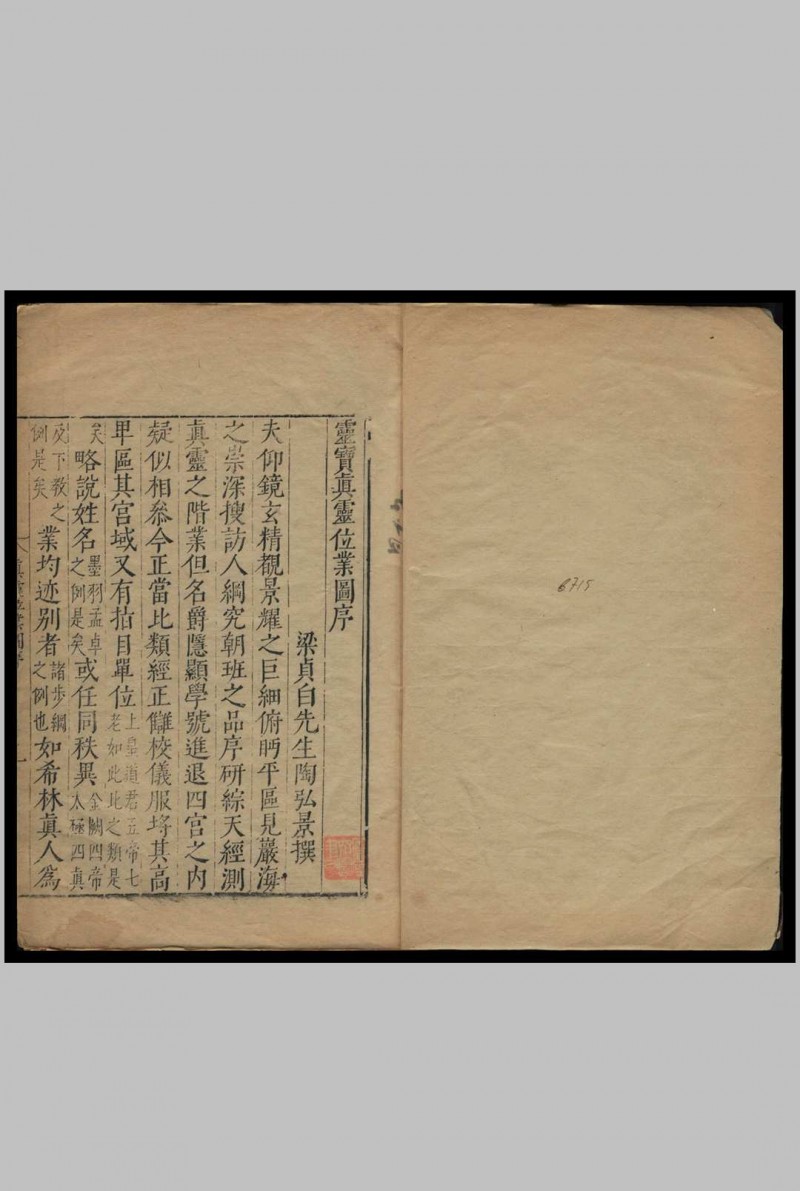 6715
靈寶眞靈位業圖序
梁貞白先生陶弘景撰
夫仰鏡玄精覩景耀之巨細俯眄平區見巖海
之崇深搜訪人綱究朝班之品序研綜天經測
眞靈之階業但名爵隱顯學號進退四宮之内
疑似相叅今正當比類經正讎校儀服埓其高
卑區其宮域又有指目單位上皇道君五帝七老如此比之類是
矣略說姓名墨羽孟卓之例是矣或任同秩異金闕四帝太極四眞
及下教之例是矣業均迹别者諸步綱之例也如希林眞人爲